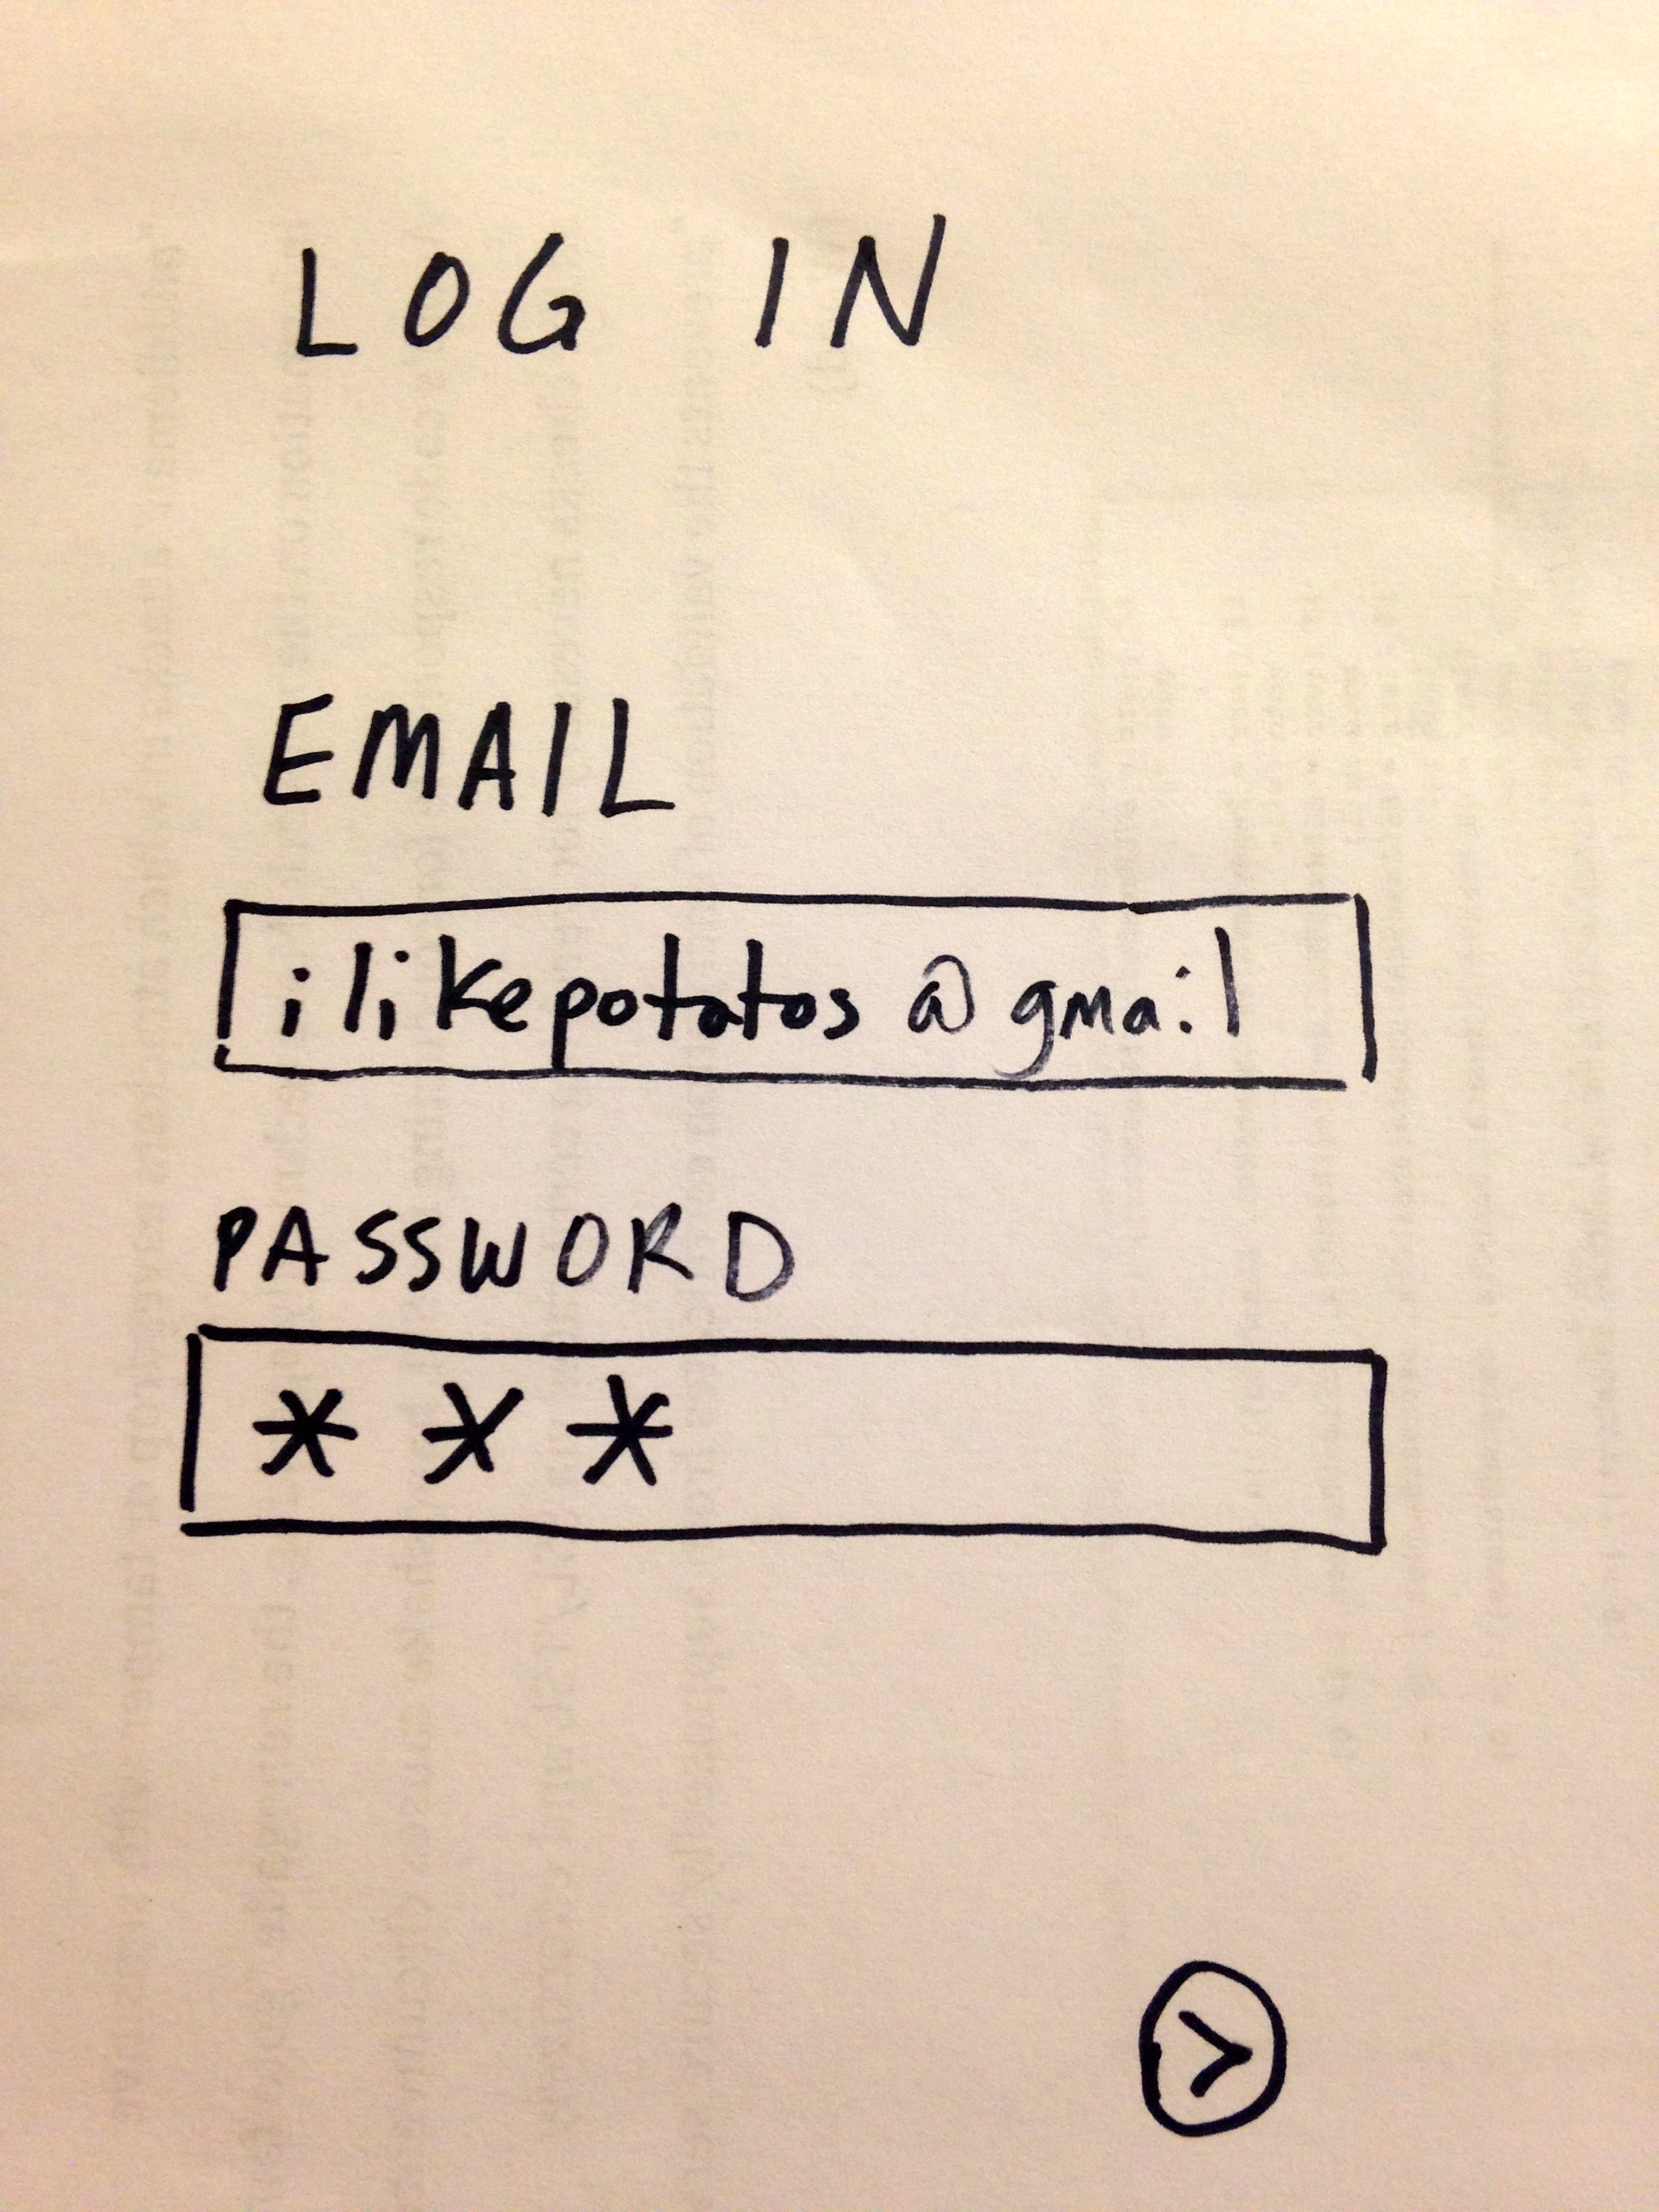 LOG IN
EMAIL
ilikepotatos@gmail
PASSWORD
***
>